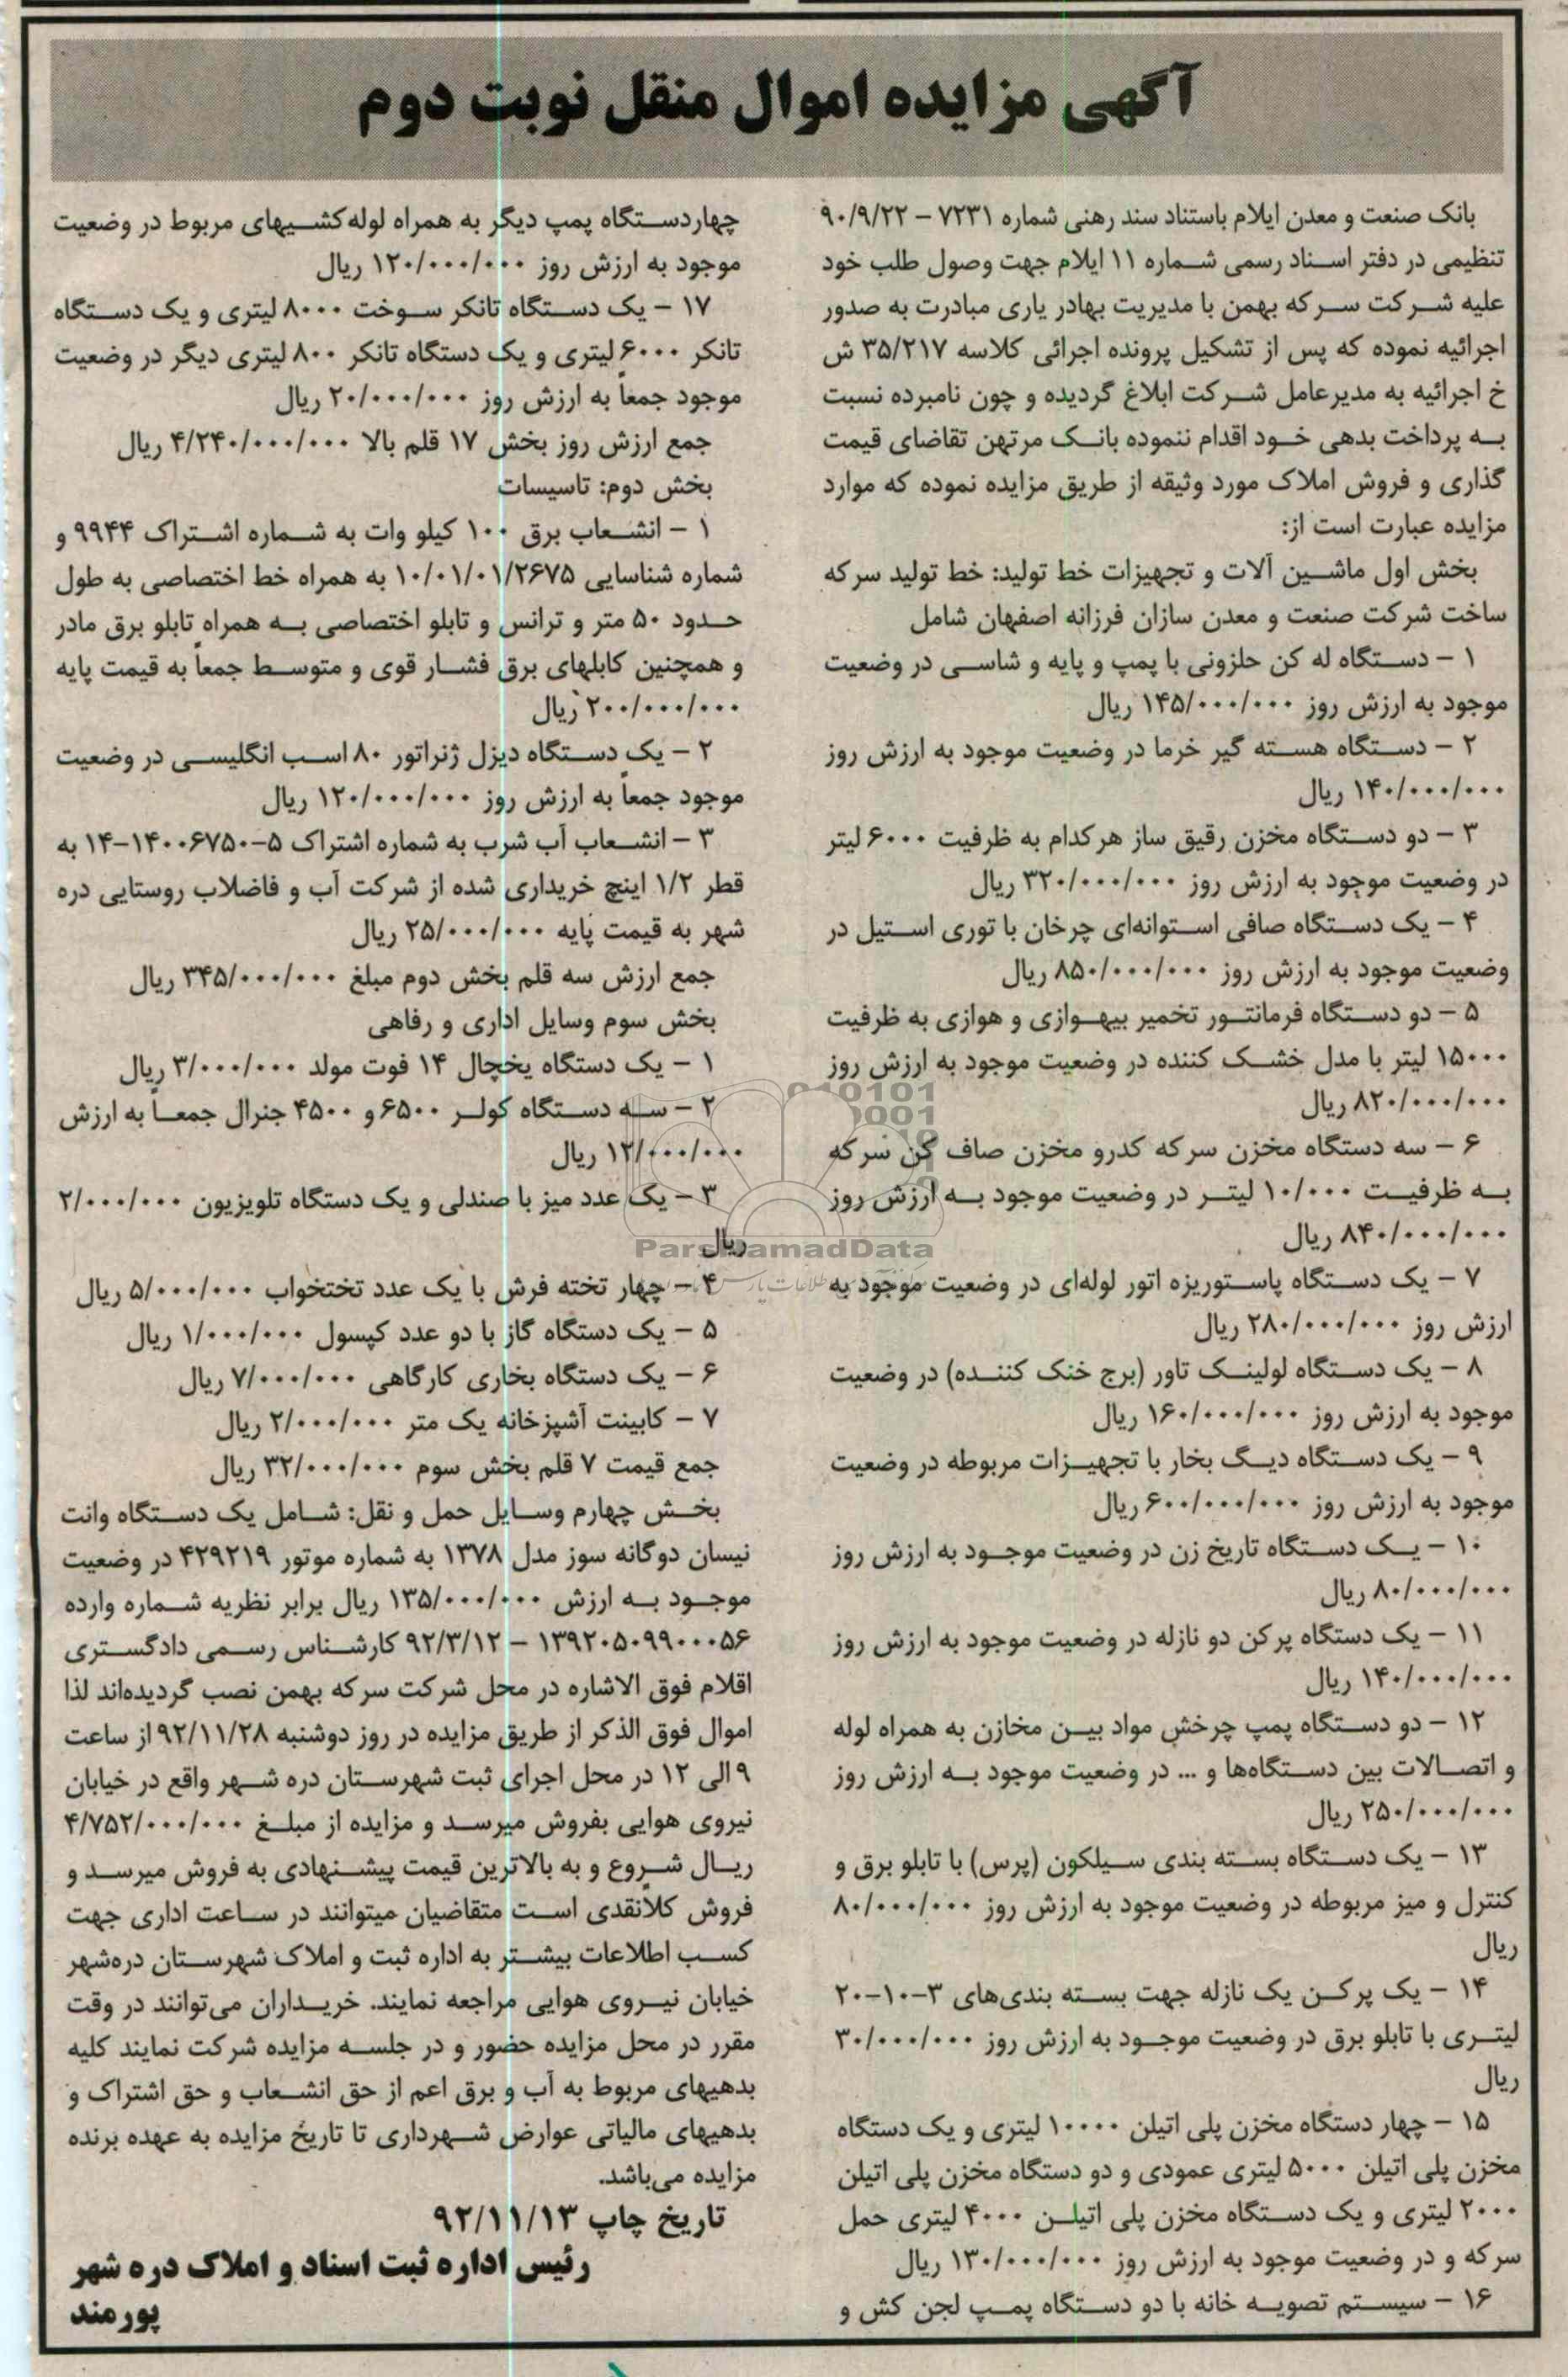 آگهی مزایده اموال منقل نوبت دوم
بانک صنعت و معدن ایلام باستناد سند رهنی شماره ۷۲۳۱ – ۹۰/۹/۲۲
تنظیمی در دفتر اسناد رسمی شماره ۱۱ ایلام جهت وصول طلب خود
علیه شرکت سرکه بهمن با مدیریت بهادر یاری مبادرت به صدور
اجرائیه نموده که پس از تشکیل پرونده اجرائی کلاسه ۳۵/۲۱۷ ش
خ اجرائیه به مدیرعامل شرکت ابلاغ گردیده و چون نامبرده نسبت
به پرداخت بدهی خود اقدام ننموده بانک مرتهن تقاضای قیمت
گذاری و فروش املاک مورد وثیقه از طریق مزایده نموده که موارد
مزایده عبارت است از:
بخش اول ماشین آلات و تجهیزات خط تولید: خط تولید سرکه
ساخت شرکت صنعت و معدن سازان فرزانه اصفهان شامل
۱ – دستگاه له کن حلزونی با پمپ و پایه و شاسی در وضعیت
موجود به ارزش روز ۱۴۵/۰۰۰/۰۰۰ ریال
۲ – دستگاه هسته گیر خرما در وضعیت موجود به ارزش روز
۱۴۰/۰۰۰/۰۰۰ ریال
۳ – دو دستگاه مخزن رقیق ساز هرکدام به ظرفیت ۶۰۰۰ لیتر
در وضعیت موجود به ارزش روز ۳۲۰/۰۰۰/۰۰۰ ریال
۴ – یک دستگاه صافی استوانه‌ای چرخان با توری استیل در
وضعیت موجود به ارزش روز ۸۵۰/۰۰۰/۰۰۰ ریال
۵ – دو دستگاه فرمانتور تخمیر بیهوازی و هوازی به ظرفیت
۱۵۰۰۰ لیتر با مدل خشک کننده در وضعیت موجود به ارزش روز
۸۲۰/۰۰۰/۰۰۰ ریال
۶ – سه دستگاه مخزن سرکه کدرو مخزن صاف کن سرکه
به ظرفیت ۱۰/۰۰۰ لیتر در وضعیت موجود به ارزش روز
۸۴۰/۰۰۰/۰۰۰ ریال
۷ – یک دستگاه پاستوریزه اتور لوله‌ای در وضعیت موجود به
ارزش روز ۲۸۰/۰۰۰/۰۰۰ ریال
۸ – یک دستگاه لولینک تاور (برج خنک کننده) در وضعیت
موجود به ارزش روز ۱۶۰/۰۰۰/۰۰۰ ریال
۹ – یک دستگاه دیگ بخار با تجهیزات مربوطه در وضعیت
موجود به ارزش روز ۶۰۰/۰۰۰/۰۰۰ ریال
۱۰ – یک دستگاه تاریخ زن در وضعیت موجود به ارزش روز
۸۰/۰۰۰/۰۰۰ ریال
۱۱ – یک دستگاه پرکن دو نازله در وضعیت موجود به ارزش روز
۱۴۰/۰۰۰/۰۰۰ ریال
۱۲ – دو دستگاه پمپ چرخش مواد بین مخازن به همراه لوله
و اتصالات بین دستگاه‌ها و ... در وضعیت موجود به ارزش روز
۲۵۰/۰۰۰/۰۰۰ ریال
۱۳ – یک دستگاه بسته بندی سیلکون (پرس) با تابلو برق و
کنترل و میز مربوطه در وضعیت موجود به ارزش روز ۸۰/۰۰۰/۰۰۰
ریال
۱۴ – یک پرکن یک نازله جهت بسته بندی‌های ۳-۱۰-۲۰
لیتری با تابلو برق در وضعیت موجود به ارزش روز ۳۰/۰۰۰/۰۰۰
ریال
۱۵ – چهار دستگاه مخزن پلی اتیلن ۱۰۰۰۰ لیتری و یک دستگاه
مخزن پلی اتیلن ۵۰۰۰ لیتری عمودی و دو دستگاه مخزن پلی اتیلن
۲۰۰۰ لیتری و یک دستگاه مخزن پلی اتیلن ۴۰۰۰ لیتری حمل
سرکه و در وضعیت موجود به ارزش روز ۱۳۰/۰۰۰/۰۰۰ ریال
۱۶ – سیستم تصویه خانه با دو دستگاه پمپ لجن کش و
چهاردستگاه پمپ دیگر به همراه لوله‌کشیهای مربوط در وضعیت
موجود به ارزش روز ۱۲۰/۰۰۰/۰۰۰ ریال
۱۷ – یک دستگاه تانکر سوخت ۸۰۰۰ لیتری و یک دستگاه
تانکر ۶۰۰۰ لیتری و یک دستگاه تانکر ۸۰۰ لیتری دیگر در وضعیت
موجود جمعاً به ارزش روز ۲۰/۰۰۰/۰۰۰ ریال
جمع ارزش روز بخش ۱۷ قلم بالا ۴/۲۴۰/۰۰۰/۰۰۰ ریال
بخش دوم: تاسیسات
۱ – انشعاب برق ۱۰۰ کیلو وات به شماره اشتراک ۹۹۴۴ و
شماره شناسایی ۱۰/۰۱/۰۱/۲۶۷۵ به همراه خط اختصاصی به طول
حدود ۵۰ متر و ترانس و تابلو اختصاصی به همراه تابلو برق مادر
و همچنین کابلهای برق فشار قوی و متوسط جمعاً به قیمت پایه
۲۰۰/۰۰۰/۰۰۰ ریال
۲ – یک دستگاه دیزل ژنراتور ۸۰ اسب انگلیسی در وضعیت
موجود جمعاً به ارزش روز ۱۲۰/۰۰۰/۰۰۰ ریال
۳ – انشعاب آب شرب به شماره اشتراک ۵-۱۴۰۰۶۷۵۰-۱۴ به
قطر ۱/۲ اینچ خریداری شده از شرکت آب و فاضلاب روستایی دره
شهر به قیمت پایه ۲۵/۰۰۰/۰۰۰ ریال
جمع ارزش سه قلم بخش دوم مبلغ ۳۴۵/۰۰۰/۰۰۰ ریال
بخش سوم وسایل اداری و رفاهی
۱ – یک دستگاه یخچال ۱۴ فوت مولد ۳/۰۰۰/۰۰۰ ریال
۲ – سه دستگاه کولر ۶۵۰۰ و ۴۵۰۰ جنرال جمعاً به ارزش
۱۲/۰۰۰/۰۰۰ ریال
۳ – یک عدد میز با صندلی و یک دستگاه تلویزیون ۲/۰۰۰/۰۰۰
ریال
۴ – چهار تخته فرش با یک عدد تختخواب ۵/۰۰۰/۰۰۰ ریال
۵ – یک دستگاه گاز با دو عدد کپسول ۱/۰۰۰/۰۰۰ ریال
۶ – یک دستگاه بخاری کارگاهی ۷/۰۰۰/۰۰۰ ریال
۷ – کابینت آشپزخانه یک متر ۲/۰۰۰/۰۰۰ ریال
جمع قیمت ۷ قلم بخش سوم ۳۲/۰۰۰/۰۰۰ ریال
بخش چهارم وسایل حمل و نقل: شامل یک دستگاه وانت
نیسان دوگانه سوز مدل ۱۳۷۸ به شماره موتور ۴۲۹۲۱۹ در وضعیت
موجود به ارزش ۱۳۵/۰۰۰/۰۰۰ ریال برابر نظریه شماره وارده
۱۳۹۲۰۵۰۹۹۰۰۰۵۶ – ۹۲/۳/۱۲ کارشناس رسمی دادگستری
اقلام فوق الاشاره در محل شرکت سرکه بهمن نصب گردیده‌اند لذا
اموال فوق الذکر از طریق مزایده در روز دوشنبه ۹۲/۱۱/۲۸ از ساعت
۹ الی ۱۲ در محل اجرای ثبت شهرستان دره شهر واقع در خیابان
نیروی هوایی بفروش میرسد و مزایده از مبلغ ۴/۷۵۲/۰۰۰/۰۰۰
ریال شروع و به بالاترین قیمت پیشنهادی به فروش میرسد و
فروش کلاًنقدی است متقاضیان میتوانند در ساعت اداری جهت
کسب اطلاعات بیشتر به اداره ثبت و املاک شهرستان دره‌شهر
خیابان نیروی هوایی مراجعه نمایند. خریداران می‌توانند در وقت
مقرر در محل مزایده حضور و در جلسه مزایده شرکت نمایند کلیه
بدهیهای مربوط به آب و برق اعم از حق انشعاب و حق اشتراک و
بدهیهای مالیاتی عوارض شهرداری تا تاریخ مزایده به عهده برنده
مزایده می‌باشد.
تاریخ چاپ ۹۲/۱۱/۱۳
رئیس اداره ثبت اسناد و املاک دره شهر
پورمند